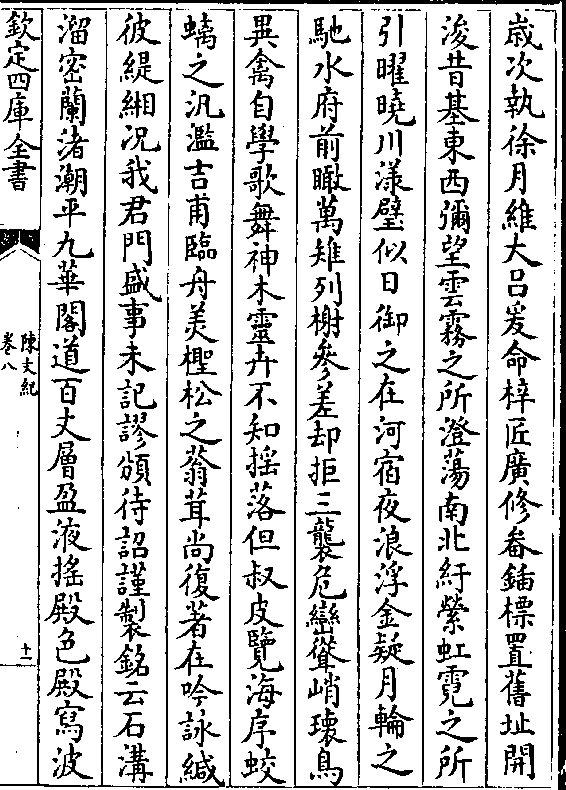 歲次執徐月維大呂爰命梓匠廣修畚鍤標置舊址開
浚昔基東西彌望雲霧之所澄蕩南北紆縈虹霓之所
引曜曉川漾璧似日御之在河宿夜浪浮金疑月輪之
馳水府前瞰萬雉列榭參差却拒三襲危巒聳峭瓌鳥
異禽自學歌舞神木靈卉不知揺落但叔皮覽海序蛟
螭之汎濫吉甫臨舟美檉松之蓊茸尚復著在吟詠緘
彼緹緗况我君門盛事未記謬頒待詔謹製銘云石溝
溜密蘭渚潮平九華閣道百丈層盈液搖殿色殿寫波
欽定四庫全書
陳文紀
卷八
十一